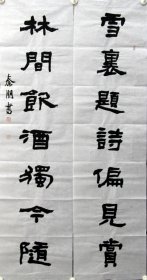 雪裏題詩偏見賞
林間飲酒獨令隨
泰朋書